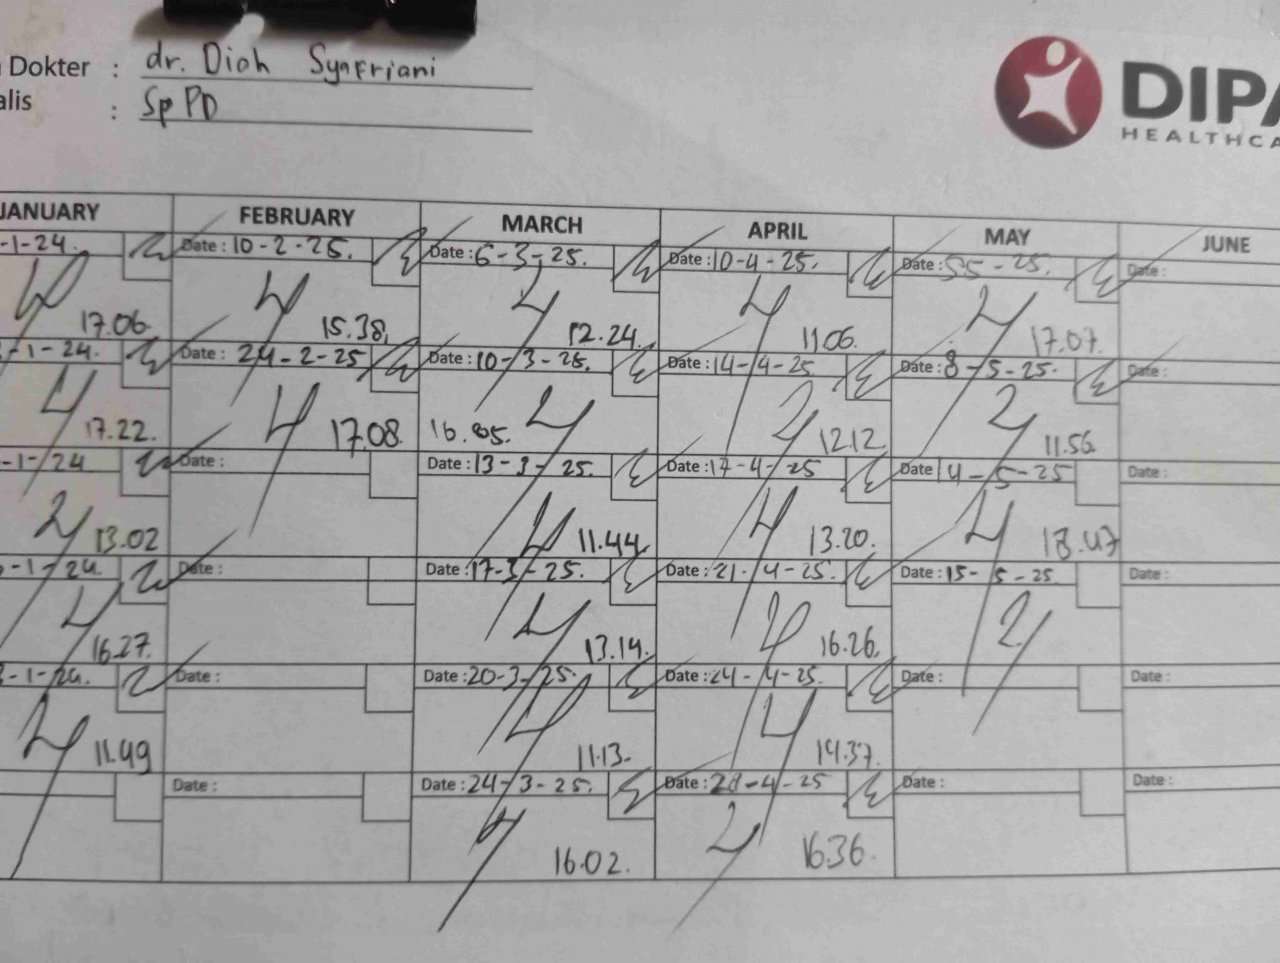 Dokter : dr. Diah Syafriani
alis : Sp PD
DIPA
HEALTHCA
JANUARY FEBRUARY MARCH APRIL MAY JUNE
-1-24. Date : 10-2-25. Date : 6-3-25. Date : 10-4-25. Date : 5-5-25. Date :
17.06 15.38 12.24 11.06 17.07
-1-24. Date : 24-2-25 Date : 10-3-25. Date : 14-4-25 Date : 8-5-25. Date :
17.22. 17.08 16.05. 12.12 11.56
-1-24 Date : Date : 13-3-25. Date : 17-4-25 Date 14-5-25 Date :
13.02 11.44 13.20. 18.47
-1-24. Date : Date : 17-3-25. Date : 21-4-25. Date : 15-5-25. Date :
16.27. 13.14. 16.26.
-1-24. Date : Date : 20-3-25. Date : 24-4-25. Date : Date :
11.49 11.13. 14.37.
Date : Date : 24-3-25. Date : 28-4-25 Date : Date :
16.02. 16.36.